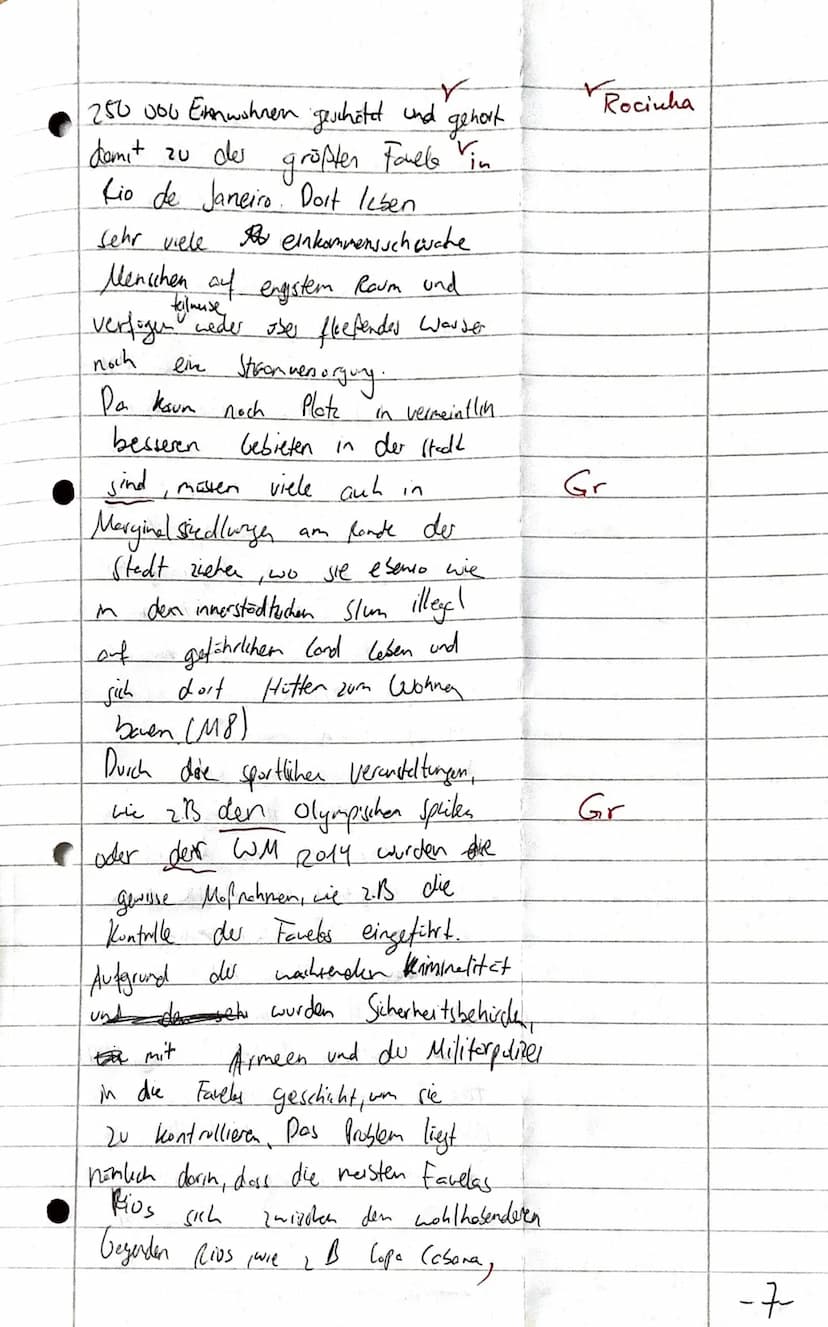 250 000 Einwohnern geschätzt und √ gehört √ Rocinha
damit zu der größten Favela √ in
Rio de Janeiro. Dort leben
sehr viele einkommensschwache
Menschen auf engstem Raum und
teilweise
verfügen weder über fließendes Wasser
noch ein Stromversorgung.
Da kaum noch Platz in vermeintlich
besseren Gebieten in der Stadt
sind, müssen viele auch in Gr
Marginalsiedlungen am Rande der
Stadt ziehen, wo sie ebenso wie
in den innerstädtischen Slum illegal
auf gefährlichem Land leben und
sich dort Hütten zum Wohnen
bauen (M8)
Durch die sportlichen Veranstaltungen,
wie z.B den Olympischen Spielen Gr
oder der WM 2014 wurden die
gewisse Maßnahmen, wie z.B die
Kontrolle der Favelas eingeführt.
Aufgrund der wachsenden Kriminalität
und wurden Sicherheitsbehörden,
mit Armeen und der Militärpolizei
in die Favelas geschickt, um sie
zu kontrollieren. Das Problem liegt
nämlich darin, dass die meisten Favelas
Rios sich zwischen den wohlhabenderen
Gegenden Rios, wie z B Copa Cabana,
-7-